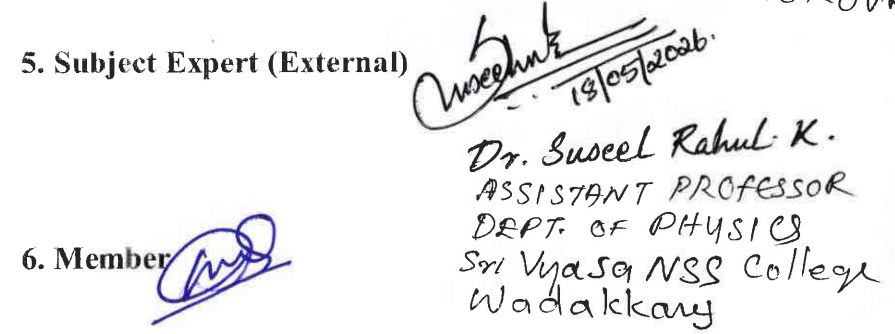 5. Subject Expert (External)
18/05/2026.
Dr. Suseel Rahul. K.
ASSISTANT PROFESSOR
DEPT. OF PHYSICS
Sri Vyasa NSS College
Wadakkany
6. Member